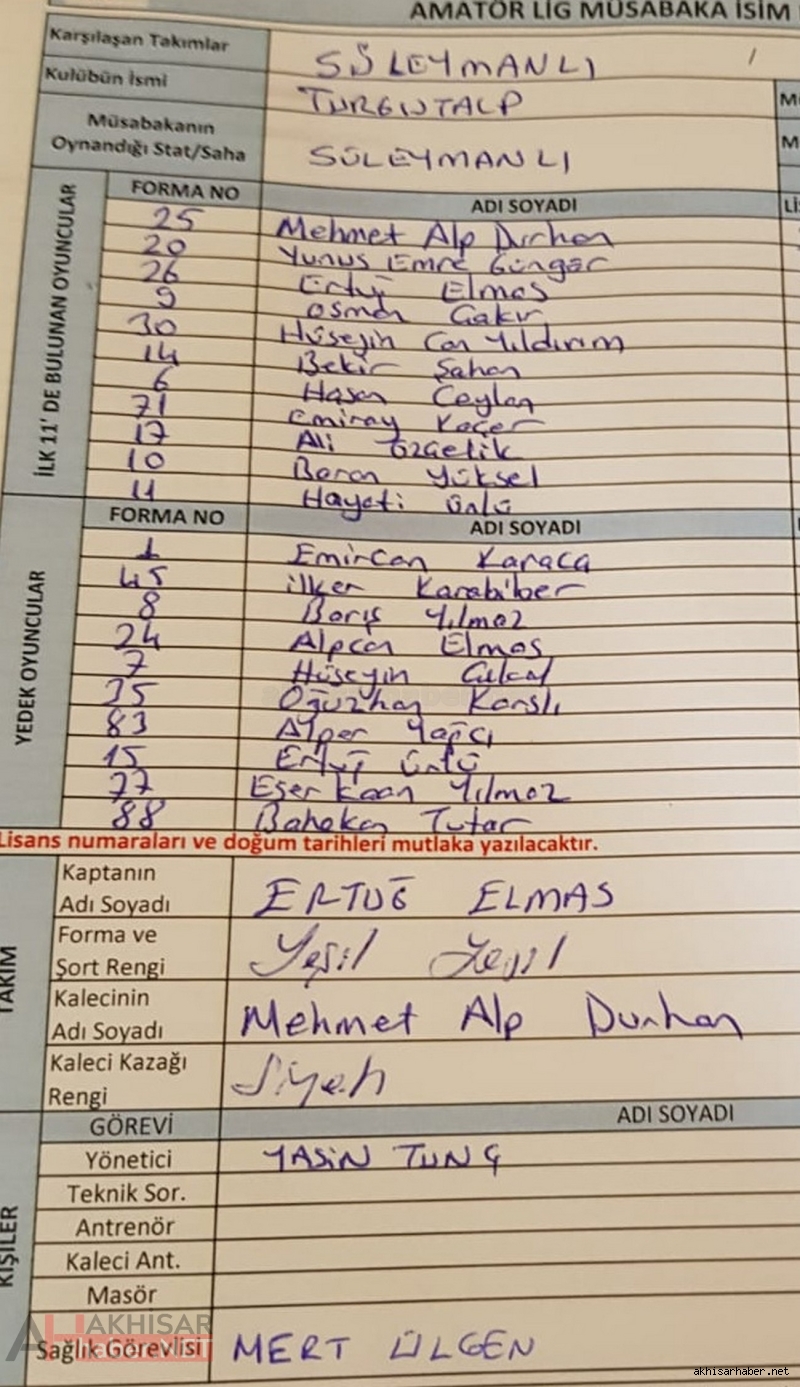 AMATÖR LİG MÜSABAKA İSİM
Karşılaşan Takımlar SÜLEYMANLI
Kulübün İsmi TURGUTALP
Müsabakanın
Oynandığı Stat/Saha SÜLEYMANLI
İLK 11' DE BULUNAN OYUNCULAR
FORMA NO ADI SOYADI
25 Mehmet Alp Durhan
20 Yunus Emre Güngör
26 Ertuğ Elmas
9 Osman Çakır
30 Hüseyin Can Yıldırım
14 Bekir Şahan
6 Hasan Ceylan
71 Emiray Koçer
17 Ali Özçelik
10 Baran Yüksel
11 Hayati Ünlü
YEDEK OYUNCULAR
FORMA NO ADI SOYADI
1 Emircan Karaca
45 İlker Karabiber
8 Barış Yılmaz
24 Alpcan Elmas
7 Hüseyin
35 Oğuzhan Karslı
83 Alper Yağcı
15 Ertuğ Ünlü
77 Eşer Kaan Yılmaz
88 Bahakan Tutar
Lisans numaraları ve doğum tarihleri mutlaka yazılacaktır.
TAKIM
Kaptanın
Adı Soyadı ERTUĞ ELMAS
Forma ve
Şort Rengi Yeşil Yeşil
Kalecinin
Adı Soyadı Mehmet Alp Durhan
Kaleci Kazağı
Rengi Siyah
KİŞİLER
GÖREVİ ADI SOYADI
Yönetici YASİN TUNÇ
Teknik Sor.
Antrenör
Kaleci Ant.
Masör
Sağlık Görevlisi MERT ÜLGEN
AKHISAR
akhisarhaber.net